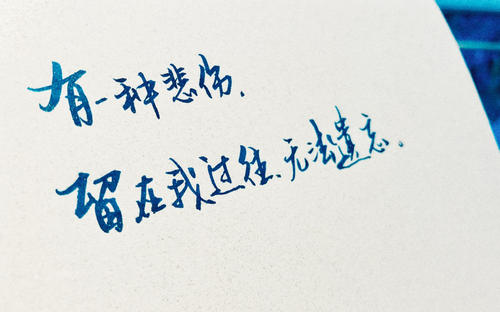 有一种悲伤.
留在我过往.无法遗忘.